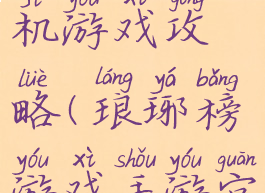 jī yóu xì gōng
机游戏攻
lüè láng yá bǎng
略(琅琊榜
yóu xì shǒu yóu guān
游戏手游官